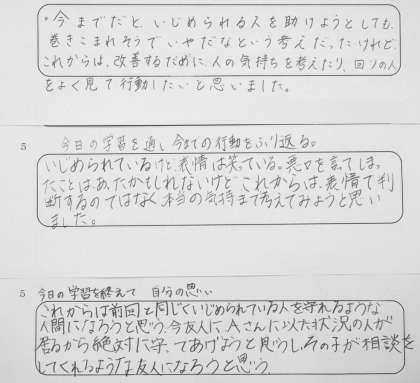 ・今までだと、いじめられる人を助けようとしても、
巻きこまれそうでいやだなという考えだったけれど、
これからは、改善するために、人の気持ちを考えたり、回りの人
をよく見て行動したいと思いました。
5 今日の学習を通し今までの行動をふり返る。
いじめられているけど、表情は笑っている。悪口を言ってしまっ
たことはあったかもしれないけど、これからは、表情で判
断するのではなく本当の気持まで考えてみようと思い
ました。
5 今日の学習を終えて 自分の思い
これからは前回と同じくいじめられている人を守れるような
人間になろうと思う。今友人にAさんに以た状況の人が
居るから絶対に守ってあげようと思うし、その子が相談を
してくれるような友人になろうと思う。